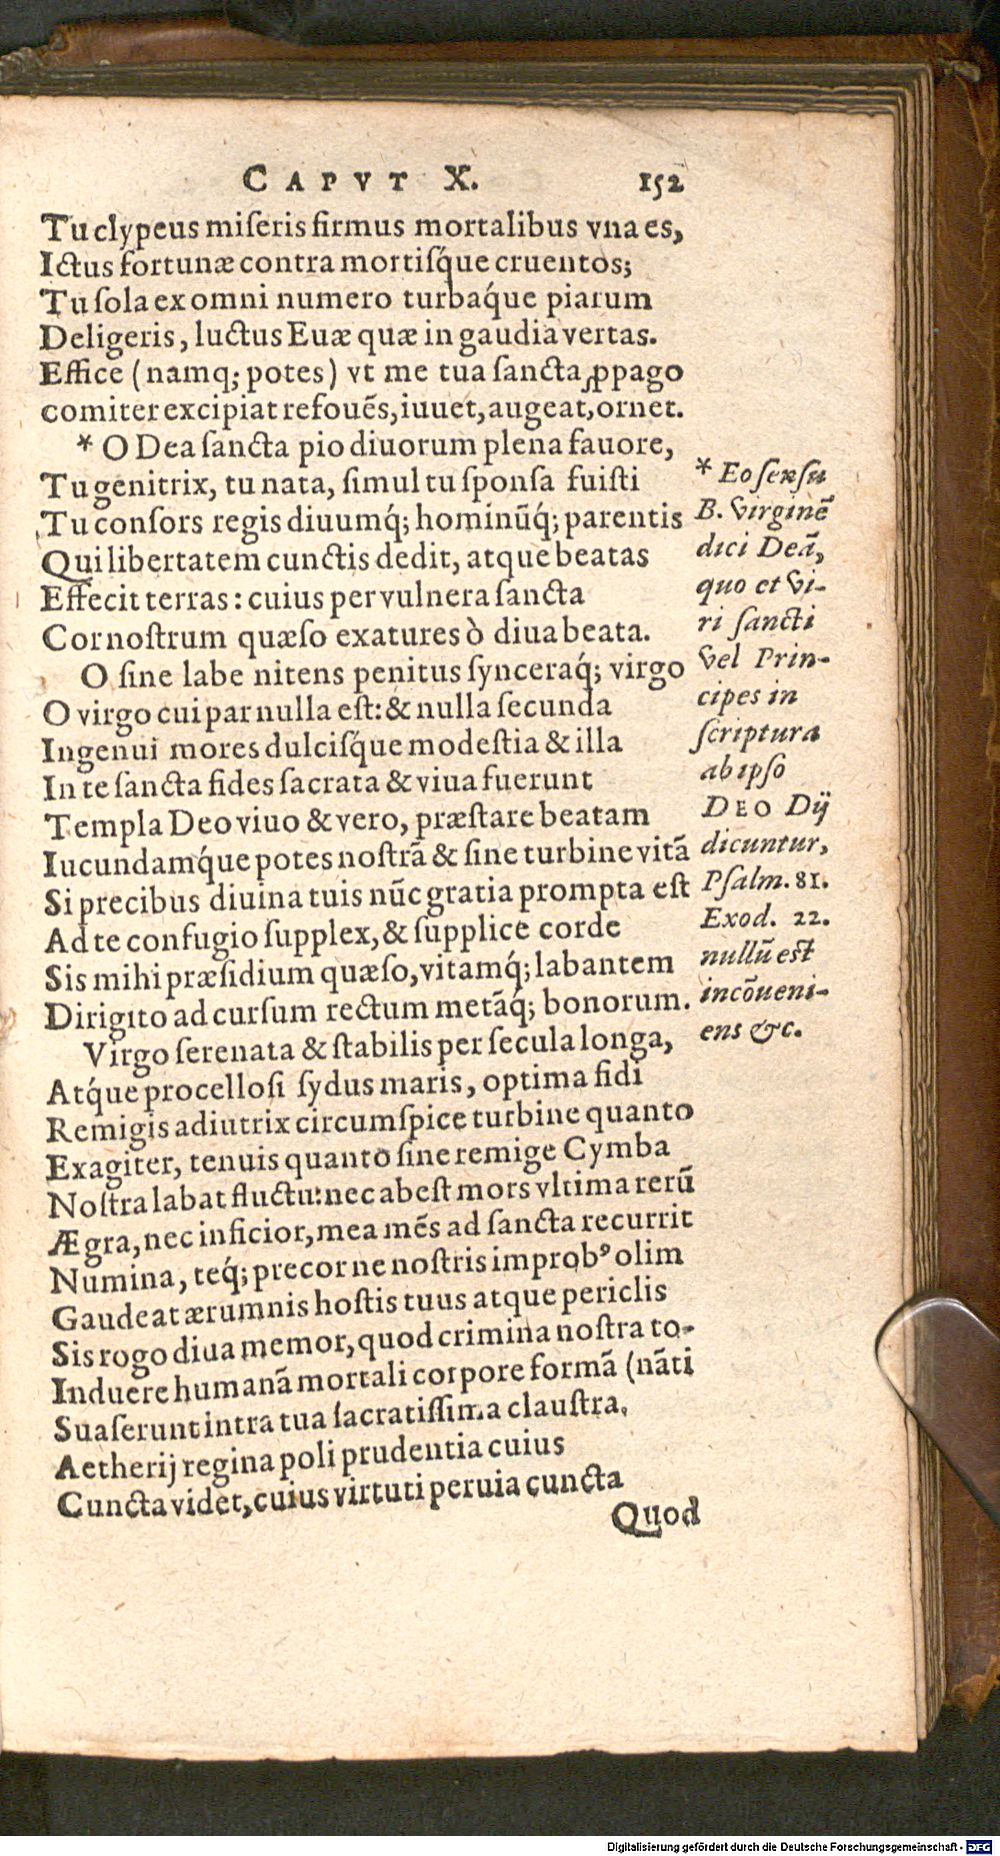 CAPVT X. 152
Tu clypeus miſeris firmus mortalibus vna es,
Ictus fortunæ contra mortiſq́ue cruentos;
Tu ſola ex omni numero turbaq́ue piarum
Deligeris, luctus Euæ quæ in gaudia vertas.
Effice (namq; potes) vt me tua ſancta ꝓpago
comiter excipiat refouẽs, iuuet, augeat, ornet.
* O Dea ſancta pio diuorum plena fauore,
Tu genitrix, tu nata, ſimul tu ſponſa fuiſti
Tu conſors regis diuumq́; hominũq́; parentis
Qui libertatem cunctis dedit, atque beatas
Effecit terras: cuius per vulnera ſancta
Cor noſtrum quæſo exatures ò diua beata.
O ſine labe nitens penitus ſynceraq́; virgo
O virgo cui par nulla eſt: & nulla ſecunda
Ingenui mores dulciſq́ue modeſtia & illa
In te ſancta fides ſacrata & viua fuerunt
Templa Deo viuo & vero, præſtare beatam
Iucundamq́ue potes noſtrã & ſine turbine vitã
Si precibus diuina tuis nũc gratia prompta eſt
Ad te confugio ſupplex, & ſupplice corde
Sis mihi præſidium quæſo, vitamq́; labantem
Dirigito ad curſum rectum metãq́; bonorum.
Virgo ſerenata & ſtabilis per ſecula longa,
Atq́ue procelloſi ſydus maris, optima fidi
Remigis adiutrix circumſpice turbine quanto
Exagiter, tenuis quanto ſine remige Cymba
Noſtra labat fluctu: nec abeſt mors vltima rerũ
Ægra, nec inficior, mea mẽs ad ſancta recurrit
Numina, teq́; precor ne noſtris improbꝰ olim
Gaudeat ærumnis hoſtis tuus atque periclis
Sis rogo diua memor, quod crimina noſtra to-
Induere humanã mortali corpore formã (nãti
Suaſerunt intra tua ſacratiſſima clauſtra.
Aetherij regina poli prudentia cuius
Cuncta videt, cuius virtuti peruia cuncta
Quod
* Eo ſenſu
B. Virginẽ
dici Deã,
quo et vi-
ri ſancti
vel Prin-
cipes in
ſcriptura
ab ipſo
DEO Dij
dicuntur,
Pſalm. 81.
Exod. 22.
nullũ eſt
incõueni-
ens &c.
Digitalisierung gefördert durch die Deutsche Forschungsgemeinschaft - DFG